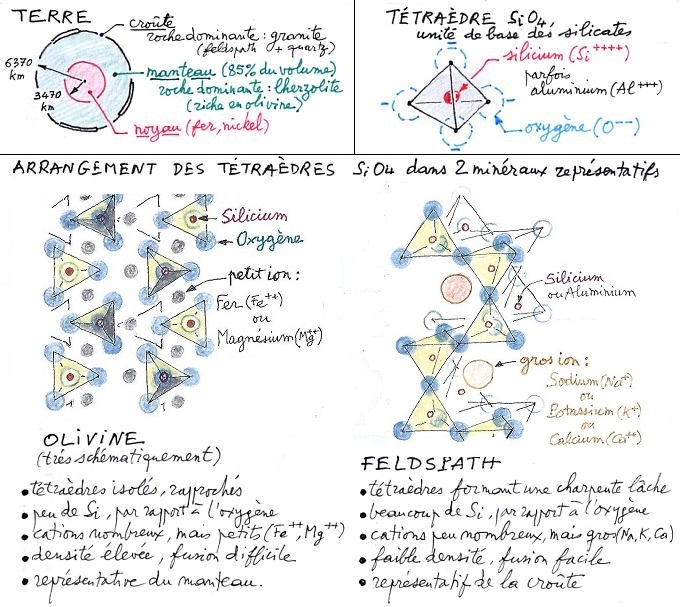 TERRE
croûte
roche dominante : granite
(feldspath + quartz)
6370
km
manteau (85% du volume)
roche dominante : lherzolite
(riche en olivine)
3470
km
noyau (fer, nickel)
TÉTRAÈDRE SiO4,
unité de base des silicates
silicium (Si++++)
parfois
aluminium (Al+++)
oxygène (O--)
ARRANGEMENT DES TÉTRAÈDRES SiO4 dans 2 minéraux représentatifs
Silicium
Oxygène
petit ion :
Fer (Fe++)
ou
Magnésium (Mg++)
Silicium
ou Aluminium
gros ion :
Sodium (Na+)
ou
Potassium (K+)
ou
Calcium (Ca++)
OLIVINE
(très schématiquement)
• tétraèdres isolés, rapprochés
• peu de Si, par rapport à l'oxygène
• cations nombreux, mais petits (Fe++, Mg++)
• densité élevée, fusion difficile
• représentative du manteau.
FELDSPATH
• tétraèdres formant une charpente lâche
• beaucoup de Si, par rapport à l'oxygène
• cations peu nombreux, mais gros (Na, K, Ca)
• faible densité, fusion facile
• représentatif de la croûte